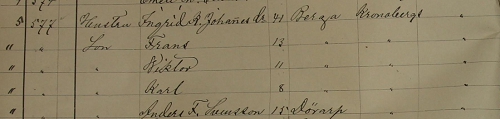 5 577 Hustru Ingrid B. Johañes dr 41 Berga Kronobergs "
" " Son Frans 13 " " "
" " " Viktor 11 " " "
" " " Karl 8 " " "
" " " Anders F. Svensson 15 Dörarp " "